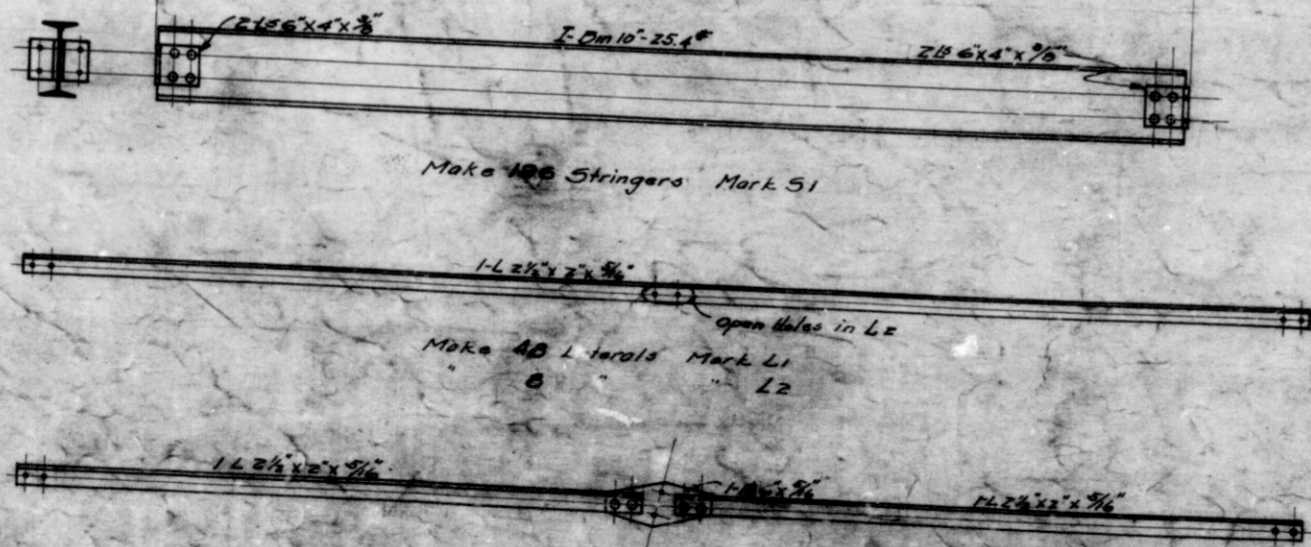 2 Ls 6"x4"x 3/8"
I-Bm 10"-25.4#
2 Ls 6"x4"x 3/8"
Make Stringers Mark S1
1-L 2½"x 2"x 5/16"
Open Holes in L2
Make 48 Laterals Mark L1
" 8 " " L2
1 L 2½"x 2"x 5/16"
5/16"
1-L 2½"x 2"x 5/16"